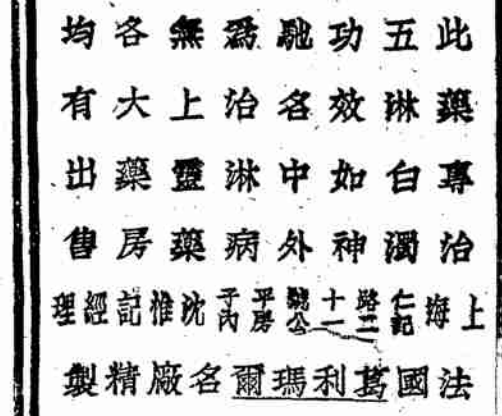 此藥專治
五淋白濁
功效如神
馳名中外
爲治淋病
無上靈藥
各大藥房
均有出售
上海仁記路二十一號公平房子內沈惟記經理
法國葛利瑪爾名廠精製